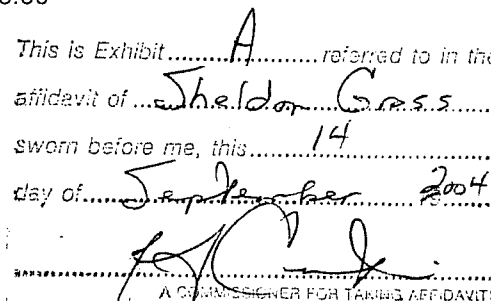 This is Exhibit......A......referred to in the
affidavit of...Sheldon Gross
sworn before me, this......14
day of......September 2004
A COMMISSIONER FOR TAKING AFFIDAVITS